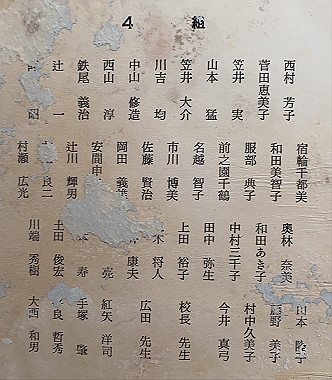 4 組
西村 芳子
菅田恵美子
笠井 実
山本 猛
笠井 大介
川吉 均
中山 修造
西山 淳
鉄尾 義治
辻 一
昭
宿輪千都美
和田美智子
服部 典子
前之園千鶴
名越 智子
市川 博美
佐藤 賢治
岡田 義雄
安間申
辻川 輝男
良二
村瀬 広光
奥林 奈美
和田あき子
中村三千子
田中 弥生
上田 裕子
木 将人
康夫
亮
寿
土田 俊宏
川端 秀樹
本 陵子
野 美子
村中久美子
今井 真弓
校長 先生
広田 先生
紅矢 洋司
手塚 肇
良 哲秀
大西 和男